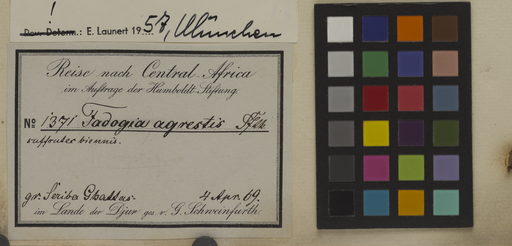 !
Rev. Determ.: E. Launert 1957, München
Reise nach Central-Africa
im Auftrage der Humboldt-Stiftung.
No 1371 Fadogia agrestis
suffrutex biennis.
gr. Seriba Ghattas. 4 Apr. 69.
im Lande der Djur ges. v. G. Schweinfurth.